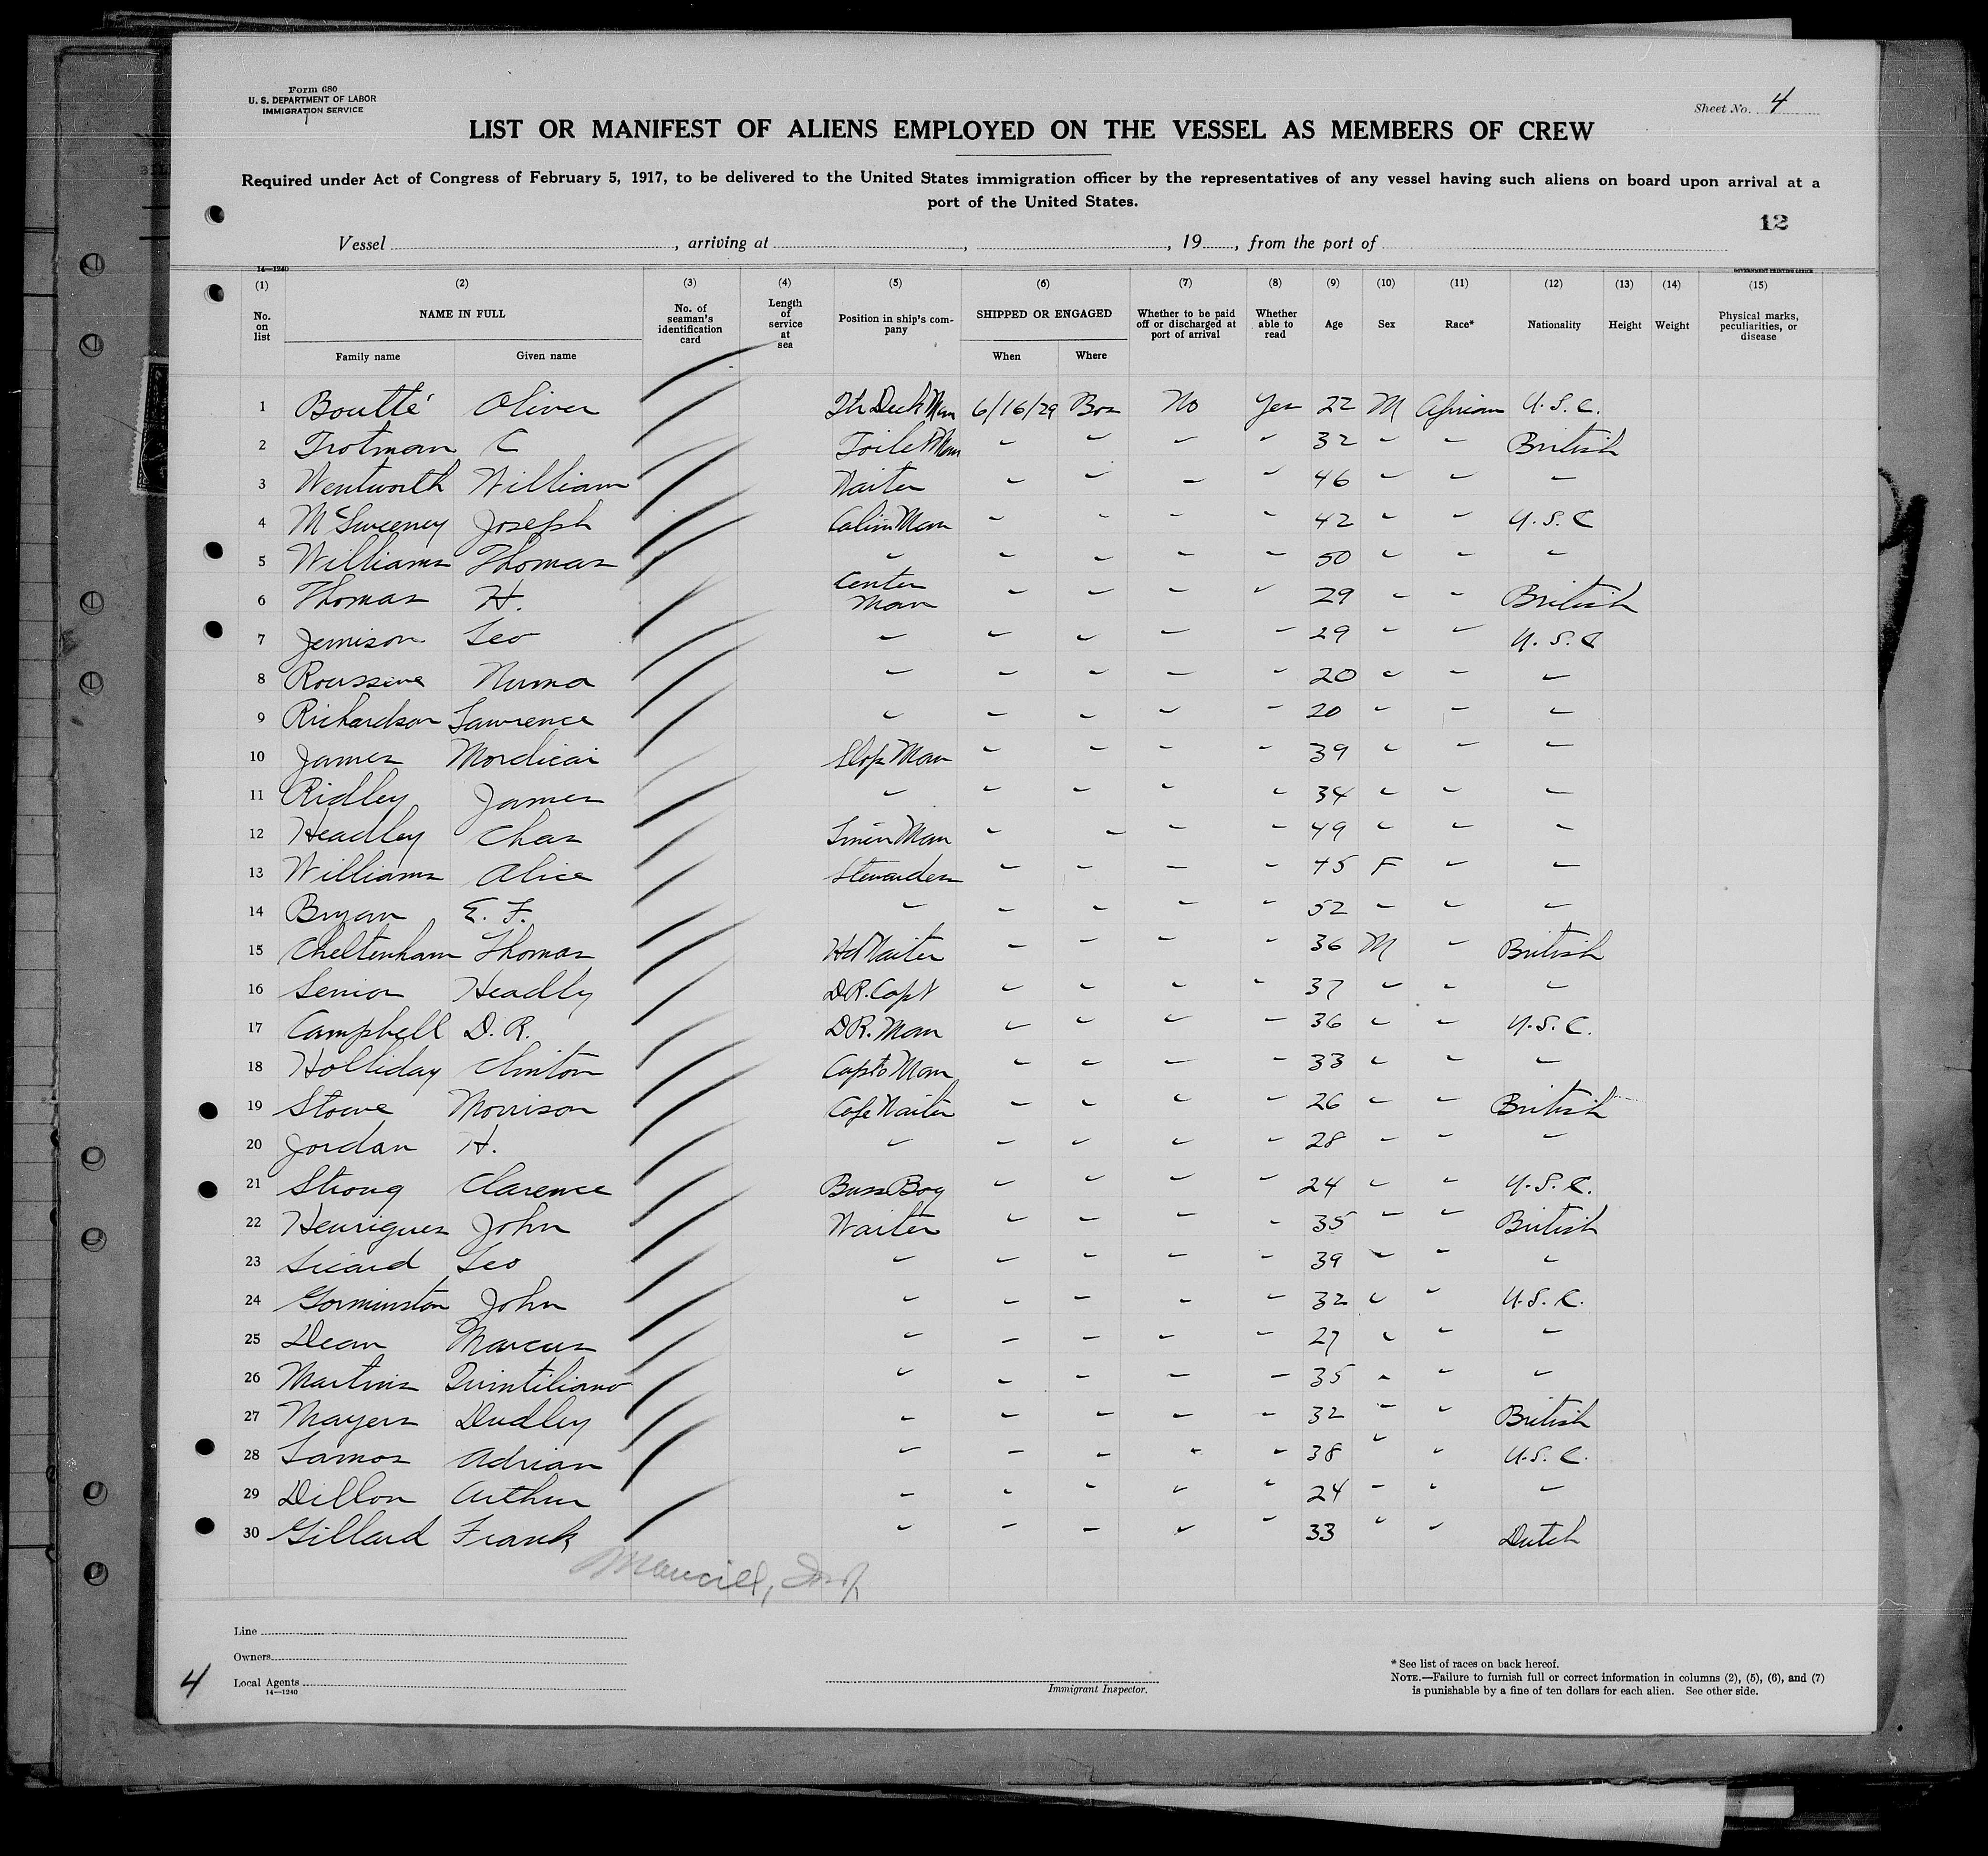 Form 680
U. S. DEPARTMENT OF LABOR
IMMIGRATION SERVICE
Sheet No. 4
LIST OR MANIFEST OF ALIENS EMPLOYED ON THE VESSEL AS MEMBERS OF CREW
Required under Act of Congress of February 5, 1917, to be delivered to the United States immigration officer by the representatives of any vessel having such aliens on board upon arrival at a
port of the United States.
12
Vessel , arriving at , , 19 , from the port of
14—1240 GOVERNMENT PRINTING OFFICE
(1) (2) (3) (4) (5) (6) (7) (8) (9) (10) (11) (12) (13) (14) (15)
No. on list NAME IN FULL Family name Given name No. of seaman's identification card Length of service at sea Position in ship's company SHIPPED OR ENGAGED When Where Whether to be paid off or discharged at port of arrival Whether able to read Age Sex Race* Nationality Height Weight Physical marks, peculiarities, or disease
1 Boutté Oliver Th Deck Man 6/16/29 Bos No Yes 22 M African U.S.C.
2 Trotman C Toilet Man " " " " 32 " " British
3 Wentworth William Waiter " " " " 46 " " "
4 McSweeney Joseph Cabin Man " " " " 42 " " U.S.C
5 Williams Thomas " " " " " 50 " " "
6 Thomas H. Center Man " " " " 29 " " British
7 Jemison Leo " " " " " 29 " " U.S.C
8 Numa " " " " " 20 " " "
9 Richardson Lawrence " " " " " 20 " " "
10 James Mordicai Slop Man " " " " 39 " " "
11 Ridley James " " " " " 34 " " "
12 Headley Chas Linen Man " " " " 49 " " "
13 Williams Alice Stewardess " " " " 45 F " "
14 Bryan E. F. " " " " " 52 " " "
15 Cheltenham Thomas Hd Waiter " " " " 36 M " British
16 Senior Headly D.R. Capt " " " " 37 " " "
17 Campbell D. R. D.R. Man " " " " 36 " " U.S.C.
18 Holliday Clinton Capts Man " " " " 33 " " "
19 Stowe Morrison Cafe Waiter " " " " 26 " " British
20 Jordan H. " " " " " 28 " " "
21 Strong Clarence Buss Boy " " " " 24 " " U.S.C.
22 Henriques John Waiter " " " " 35 " " British
23 Sicard Leo " " " " " 39 " " "
24 Gorminston John " " " " " 32 " " U.S.C.
25 Dean Marcus " " " " " 27 " " "
26 Martins Quintiliano " " " " " 35 " " "
27 Mayers Dudley " " " " " 32 " " British
28 Lamos Adrian " " " " " 38 " " U.S.C.
29 Dillon Arthur " " " " " 24 " " "
30 Gillard Frank " " " " " 33 " " Dutch
Line
Owners
Local Agents
14—1240
4
Immigrant Inspector.
* See list of races on back hereof.
NOTE.—Failure to furnish full or correct information in columns (2), (5), (6), and (7)
is punishable by a fine of ten dollars for each alien. See other side.